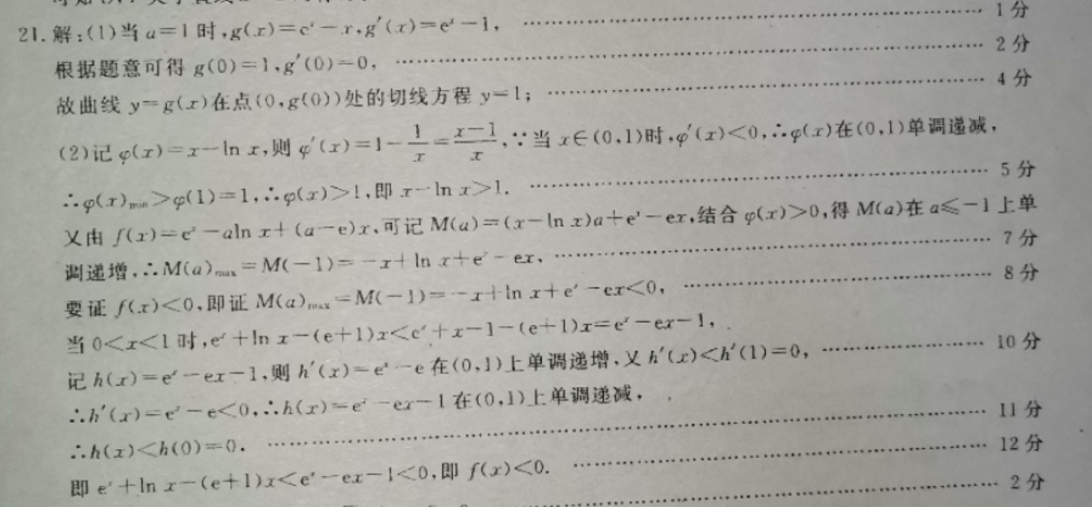 21.解:(1)当 a=1 时,g(x)=eˣ-x,g′(x)=eˣ-1, …… 1分
根据题意可得 g(0)=1,g′(0)=0, …… 2分
故曲线 y=g(x)在点(0,g(0))处的切线方程 y=1; …… 4分
(2)记 φ(x)=x-ln x,则 φ′(x)=1-1/x=(x-1)/x,∵当 x∈(0,1)时,φ′(x)<0,∴φ(x)在(0,1)单调递减,
∴φ(x)min>φ(1)=1,∴φ(x)>1,即 x-ln x>1. …… 5分
又由 f(x)=eˣ-aln x+(a-e)x,可记 M(a)=(x-ln x)a+eˣ-ex,结合 φ(x)>0,得 M(a)在 a≤-1 上单
调递增,∴M(a)max=M(-1)=-x+ln x+eˣ-ex, …… 7分
要证 f(x)<0,即证 M(a)max=M(-1)=-x+ln x+eˣ-ex<0, …… 8分
当 0<x<1 时,eˣ+ln x-(e+1)x<eˣ+x-1-(e+1)x=eˣ-ex-1,
记 h(x)=eˣ-ex-1,则 h′(x)=eˣ-e 在(0,1)上单调递增,又 h′(x)<h′(1)=0, …… 10分
∴h′(x)=eˣ-e<0,∴h(x)=eˣ-ex-1 在(0,1)上单调递减,
∴h(x)<h(0)=0. …… 11分
即 eˣ+ln x-(e+1)x<eˣ-ex-1<0,即 f(x)<0. …… 12分
…… 2分